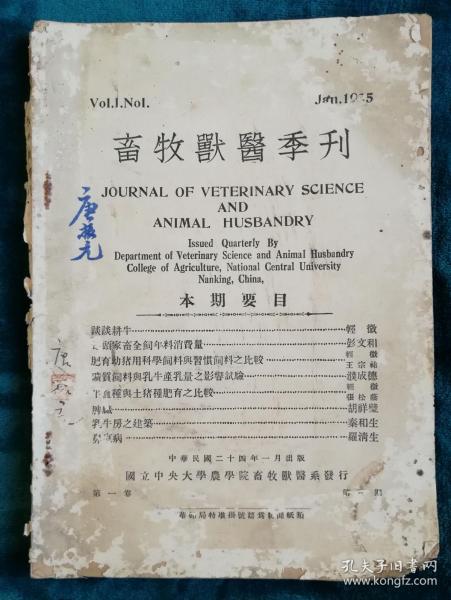 Vol.I.No1.
Jan.1935
畜牧獸醫季刊
JOURNAL OF VETERINARY SCIENCE
AND
ANIMAL HUSBANDRY
Issued Quarterly By
Department of Veterinary Science and Animal Husbandry
College of Agriculture, National Central University
Nanking, China,
本期要目
談談耕牛 輕微
頭家畜全飼年料消費量 彭文和
肥育幼猪用科學飼料與習慣飼料之比較 輕微 王宗祐
礦質飼料與乳牛產乳量之影響試驗 濮成德
血種與土猪種肥育之比較 輕微 張松蔭
脾鹹 胡祥璧
乳牛房之建築 秦和生
病 羅清生
中華民國二十四年一月出版
國立中央大學農學院畜牧獸醫系發行
第一卷
第一期
唐
元
唐
孔夫子旧书网
book.kongfz.com